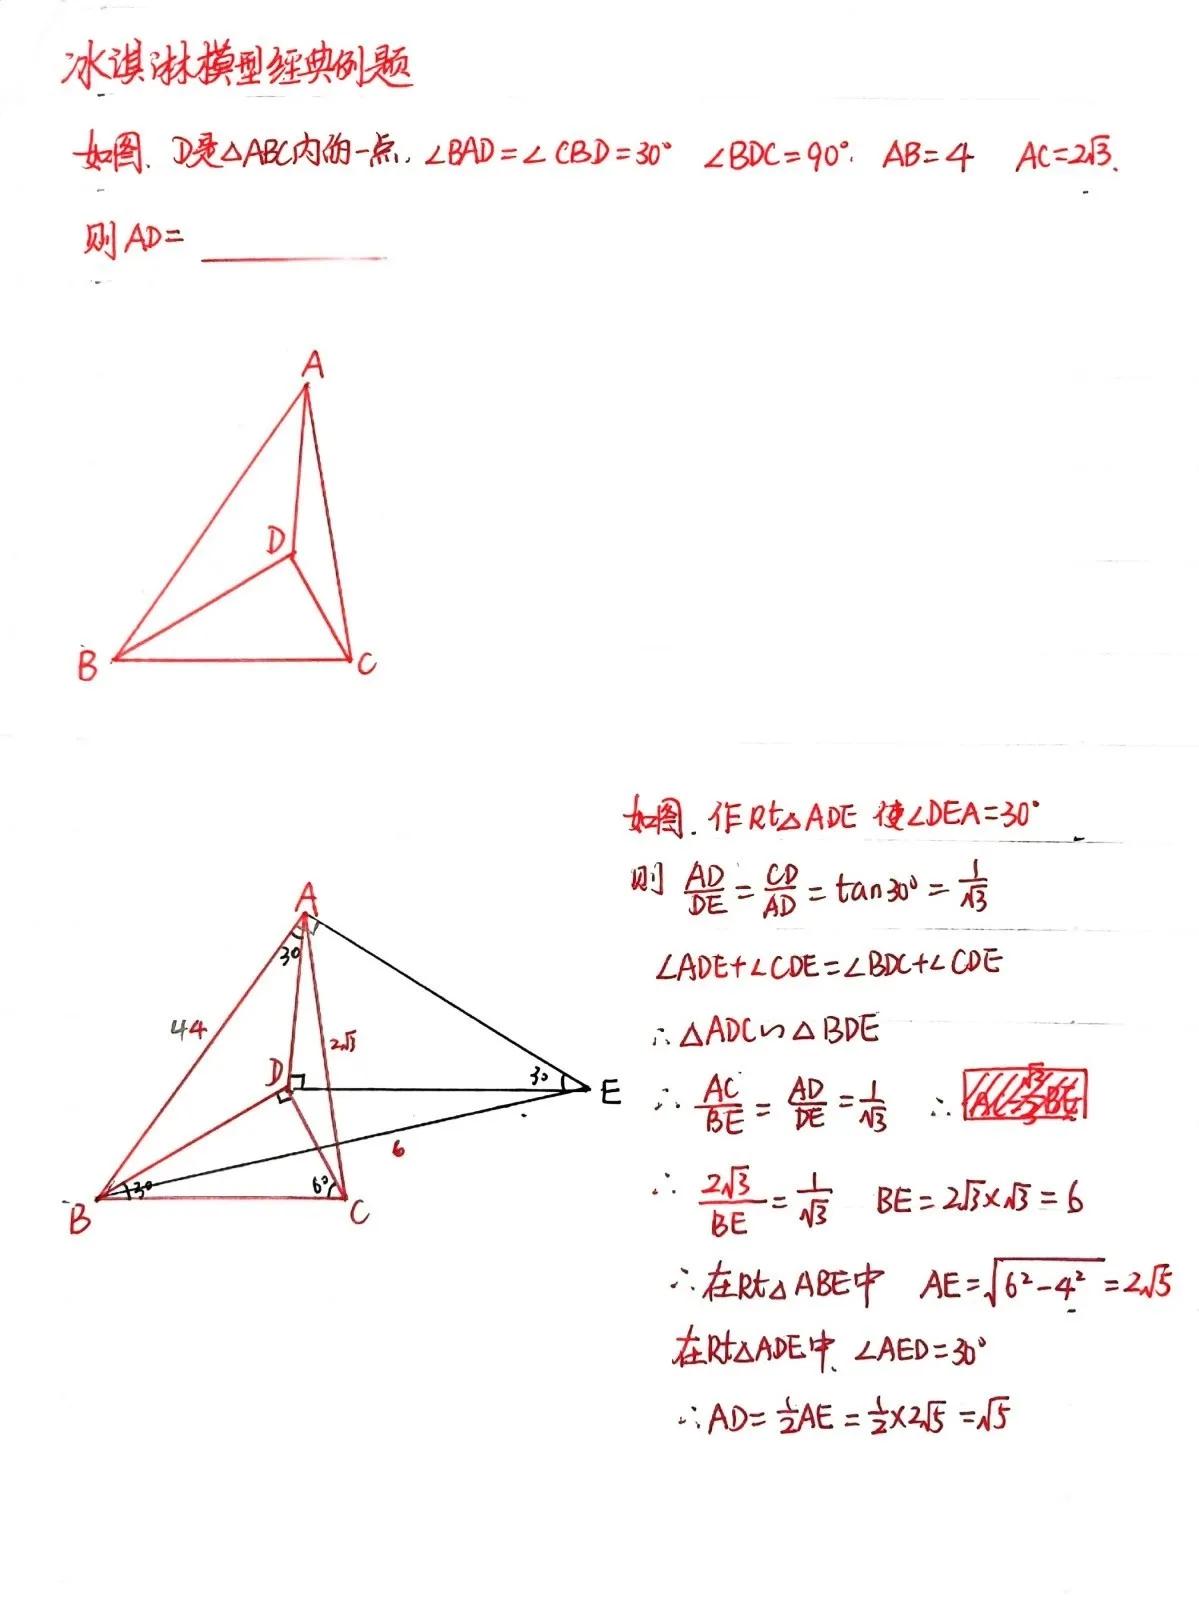 冰淇淋模型经典例题
如图. D是△ABC内的一点, ∠BAD=∠CBD=30° ∠BDC=90°. AB=4 AC=2√3.
则AD=
A
D
B
C
如图. 作Rt△ADE 使∠DEA=30°
则 AD/DE = CD/AD = tan30° = 1/√3
∠ADE+∠CDE=∠BDC+∠CDE
∴△ADC∽△BDE
∴ AC/BE = AD/DE = 1/√3 ∴
∴ 2√3/BE = 1/√3 BE=2√3×√3=6
∴在Rt△ABE中 AE=√(6²-4²)=2√5
在Rt△ADE中, ∠AED=30°
∴AD=1/2AE=1/2×2√5=√5
A
30
44
2√3
D
30
E
6
B
30
60
C